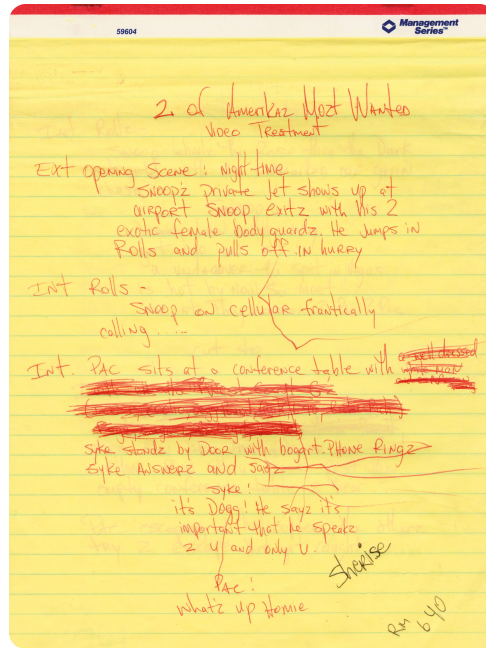 59604
Management
Series™
2 of Amerikaz Most Wanted
Video Treatment
Ext Opening Scene: Nighttime
Snoopz private jet shows up at
airport Snoop exitz with his 2
exotic female bodyguardz. He Jumps in
Rolls and pulls off in hurry
Int Rolls -
Snoop on cellular frantically
calling.....
Int. Pac sits at a conference table with a well dressed
Syke standz by Door with bogart. Phone Ringz
Syke Answerz and sayz
Syke:
it's Dogg! He sayz it's
important that he speakz
2 U and only U.
Pac:
what'z up Homie
Sherise
Rm 640